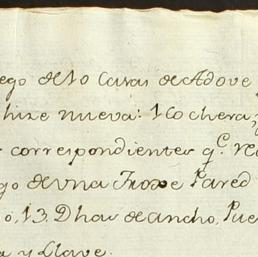 ego de 10 Casas de Adove
hize nueva: 1 Cochera,
correspondientes q.e
go de una Pared
o, 13. D has de ancho, Pue
a y Llave.